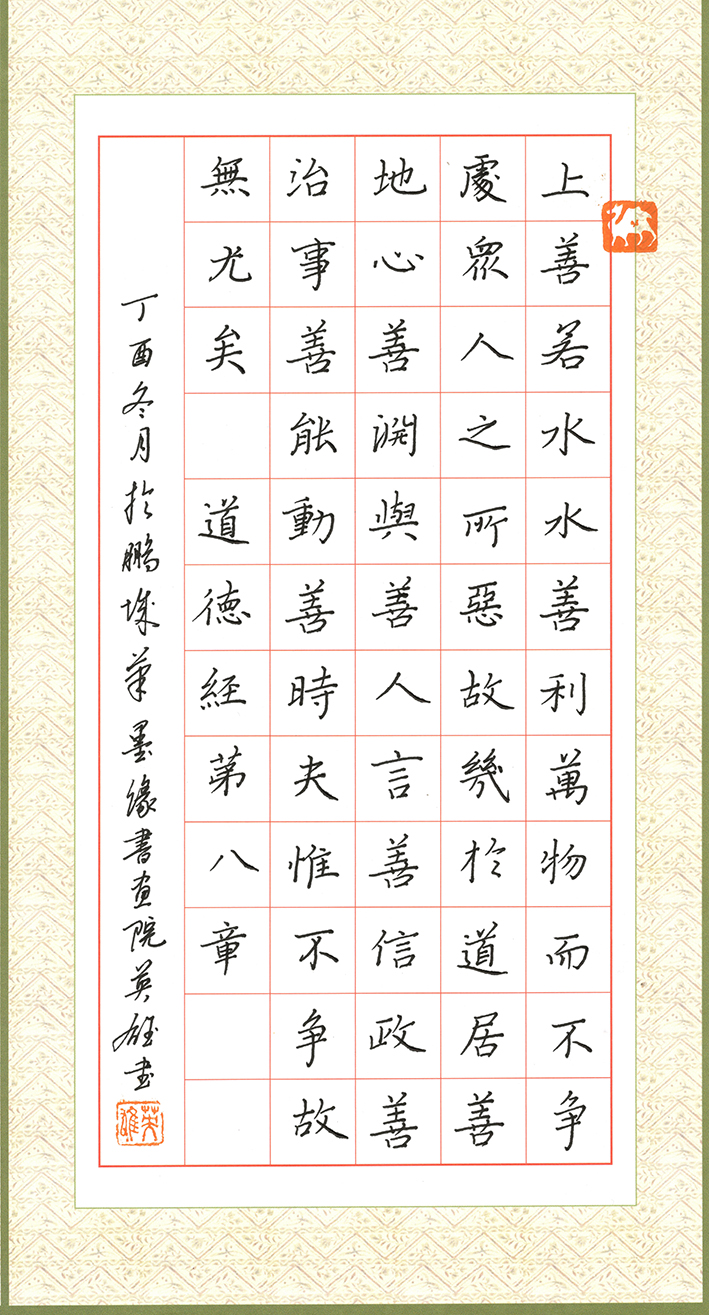 上善若水水善利萬物而不争
處衆人之所惡故幾於道居善
地心善渊與善人言善信政善
治事善能動善時夫惟不争故
無尤矣 道德経第八章
丁酉冬月於鹏城筆墨缘書画院英雄书
英雄